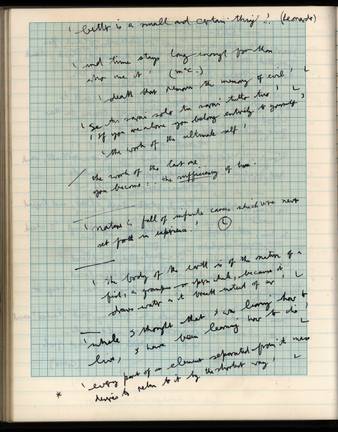 ' better is a small and certain thing ' ! (Leonardo)
' and time stays long enough for those
who use it ' (
' death that removes the memory of evil ' L
' Se tu sarai solo tu sarai tutto tuo ' L
' If you are alone you belong entirely to yourself '
' the work of the ultimate self '
the work of the last one
you become ... the sufficiency of
' nature is full of infinite causes which were never
set forth in experience ' L
' the body of the earth is of the nature of a
fish, a grampus or sperm whale, because it
draws water as it breath instead of air ' L
' while I thought that I was learning how to
live, I have been learning how to die ' L
' every part of an element separated from its mass
desires to return to it by the shortest way ' L
*